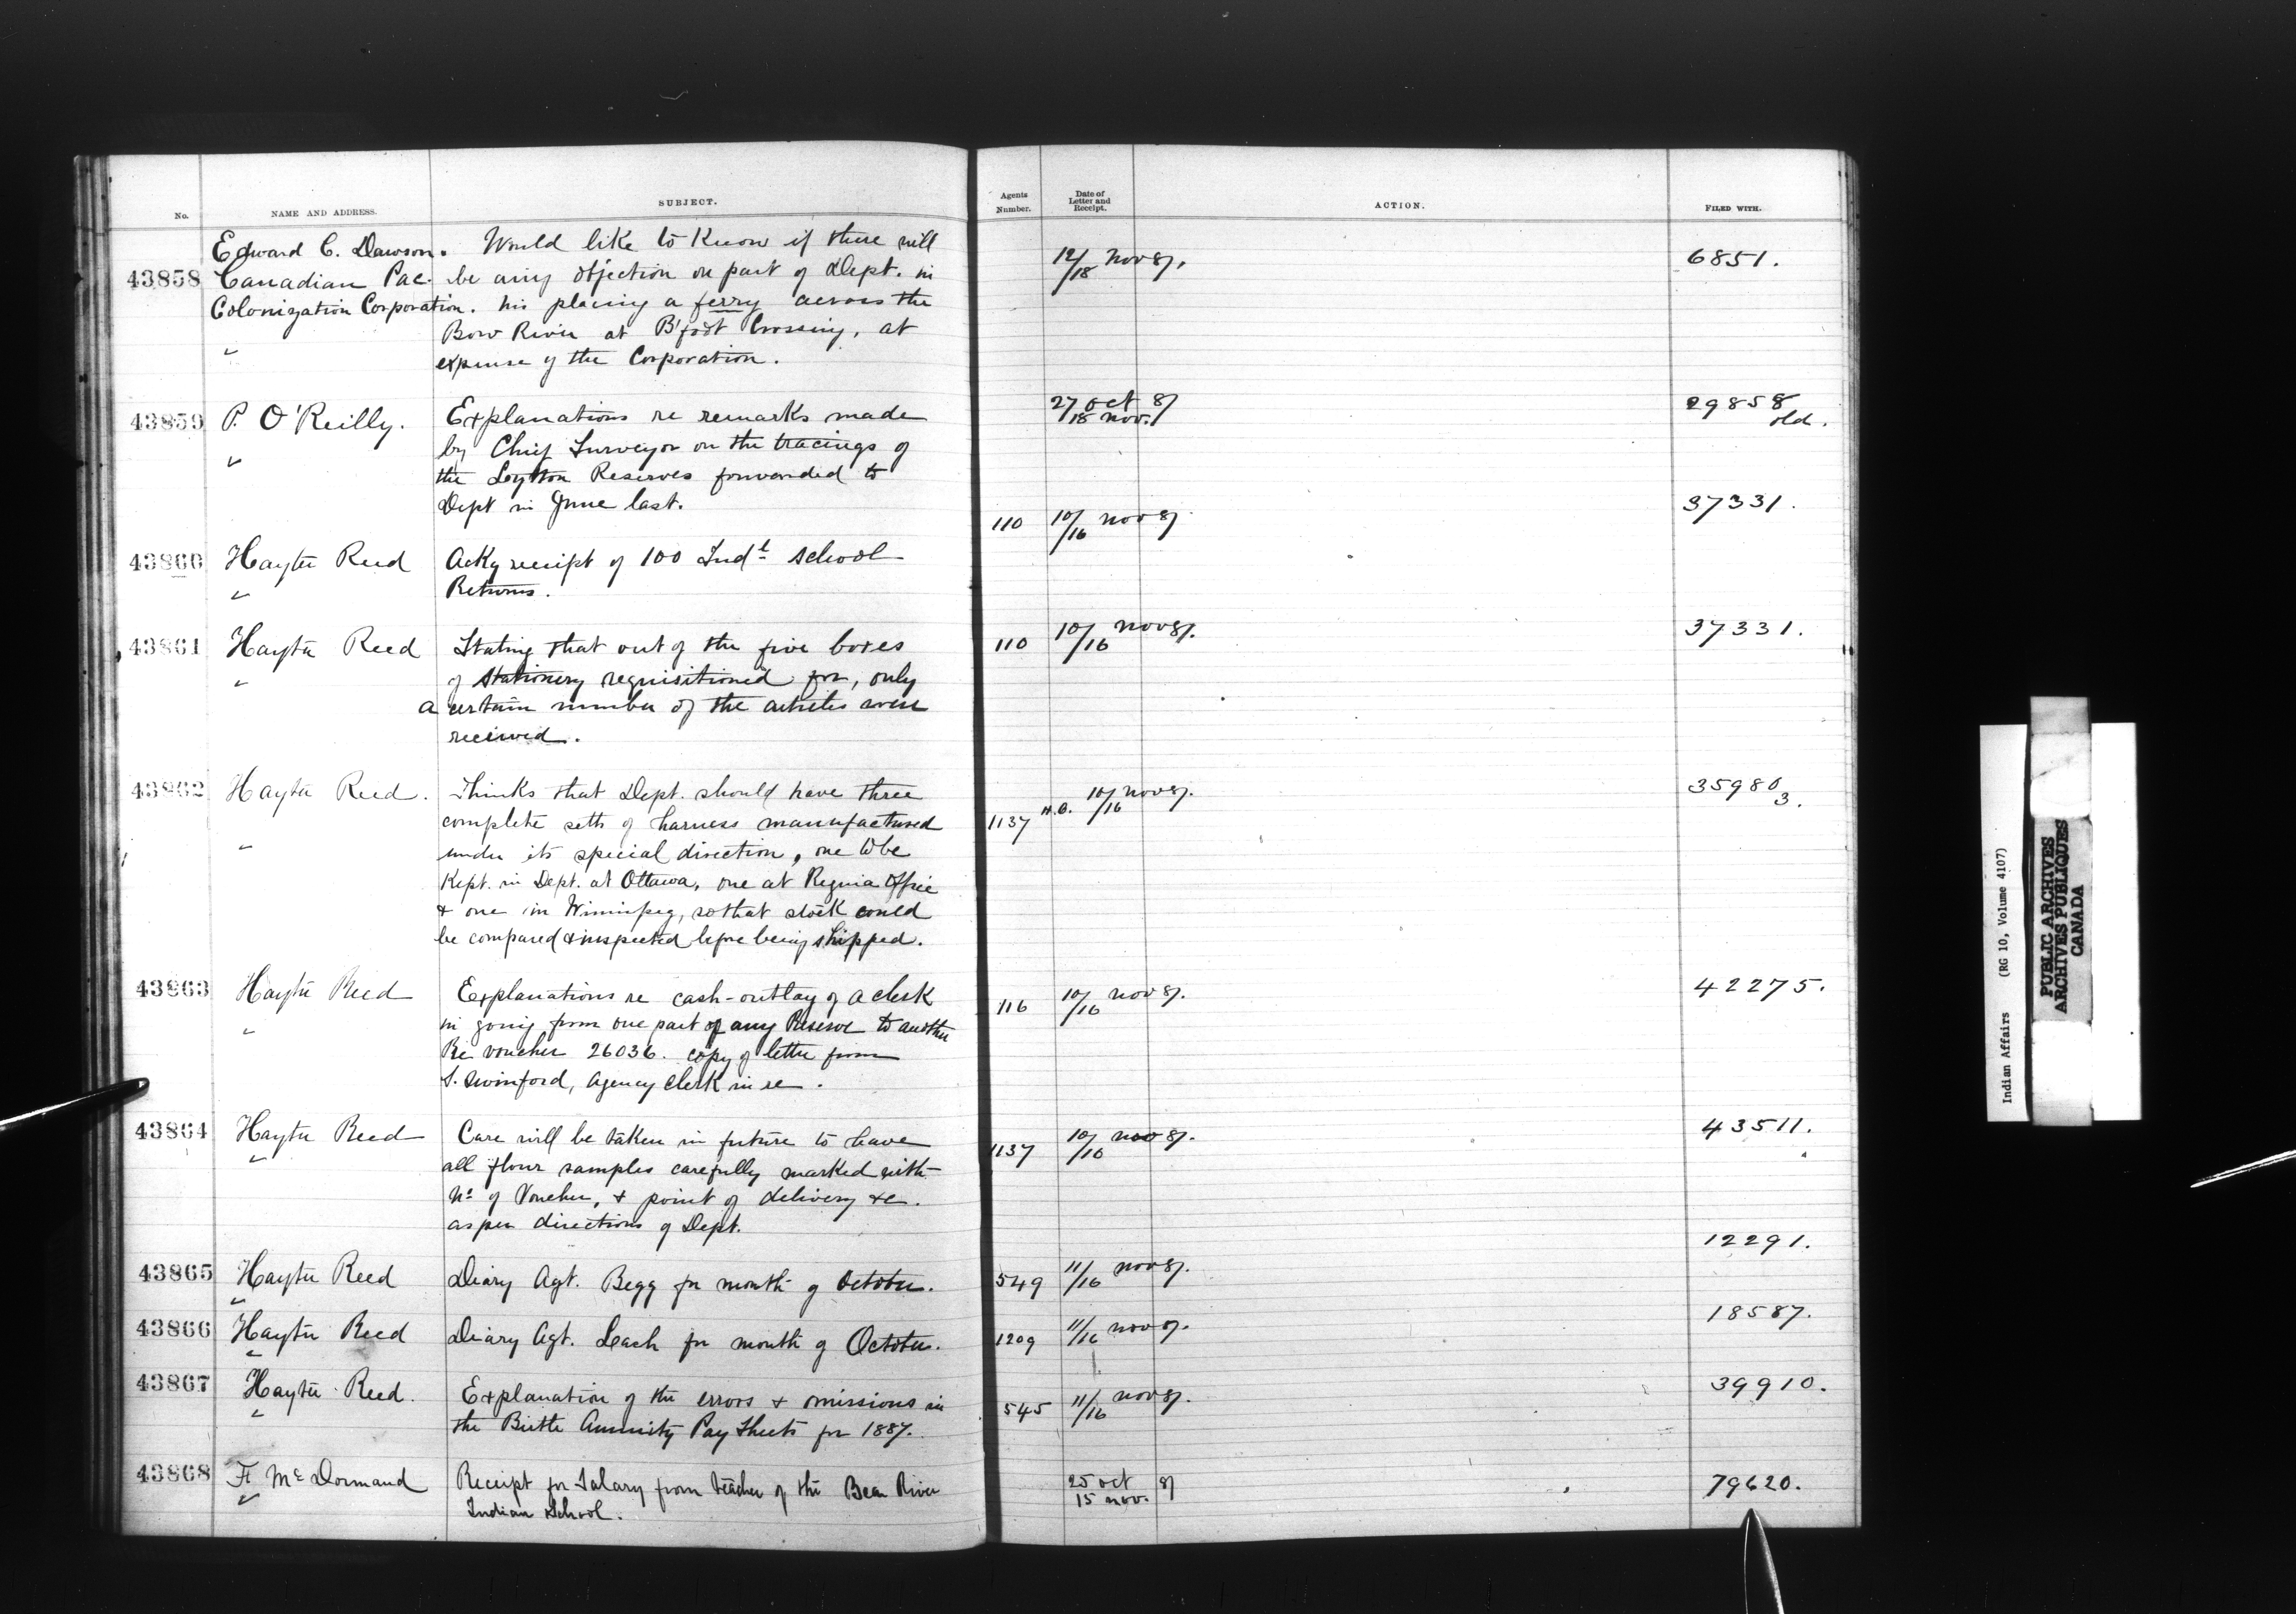 No.
NAME AND ADDRESS.
SUBJECT.
Agents Number.
Date of Letter and Receipt.
ACTION.
FILED WITH.
43858
Edward C. Dawson.
Canadian Pac.
Colonization Corporation.
Would like to know if there will
be any objection on part of Dept. in
his placing a ferry across the
Bow River at B'foot Crossing, at
expense of the Corporation.
12/18 Nov 87.
6851.
43859
P. O'Reilly.
Explanations re remarks made
by Chief Surveyor on the tracings of
the Lytton Reserves forwarded to
Dept in June last.
27 Oct 87
18 Nov.
29858
old.
43860
Hayter Reed
Ackg receipt of 100 Indl School
Returns.
110
10/16 Nov 87
37331.
43861
Hayter Reed
Stating that out of the five boxes
of stationery requisitioned for, only
a certain number of the articles were
received.
110
10/16 Nov 87.
37331.
43862
Hayter Reed.
Thinks that Dept. should have three
complete setts of harness manufactured
under its special direction, one to be
Kept. in Dept. at Ottawa, one at Regina Office
& one in Winnipeg, so that stock could
be compared & inspected before being shipped.
1137
10/16 Nov 87.
35980
3.
43863
Hayter Reed
Explanations re cash-outlay of a clerk
in going from one part of any Reserve to another
Re voucher 26036. copy of letter from
S. Swinford, Agency Clerk in re.
116
10/16 Nov 87.
42275.
43864
Hayter Reed
Care will be taken in future to have
all flour samples carefully marked with
No of Voucher, & point of delivery &c.
as per directions of Dept.
1137
10/16 Nov 87.
43511.
43865
Hayter Reed
Diary Agt. Begg for month of October.
549
11/16 Nov 87.
12291.
43866
Hayter Reed
Diary Agt. Leach for month of October.
1209
11/16 Nov 87.
18587.
43867
Hayter Reed.
Explanation of the errors & omissions in
the Birtle Annuity Pay Sheets for 1887.
545
11/16 Nov 87.
39910.
43868
F. McDormand
Receipt for Salary from teacher of the Bear River
Indian School.
25 Oct 87
15 Nov.
79620.
Indian Affairs (RG 10, Volume 4107)
PUBLIC ARCHIVES
ARCHIVES PUBLIQUES
CANADA